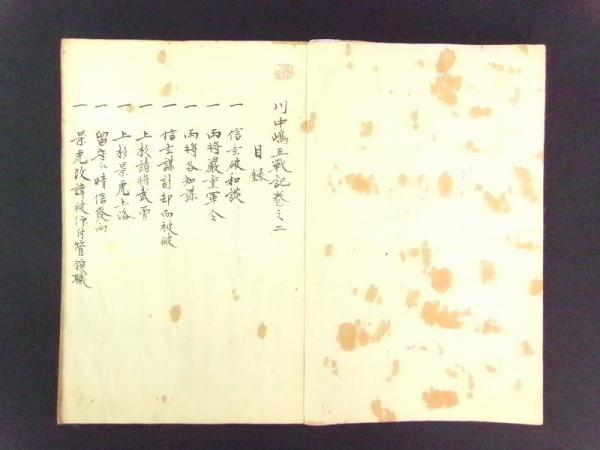 川中嶋五戰記巻之二
目録
一 信玄破和談
一 両将嚴重軍令
一 両将各知謀
一 信玄謀計却而被破
一 上杉諸将武勇
一 上杉景虎上洛
一 留守之時信発向
一 景虎改諱被仰付管領職